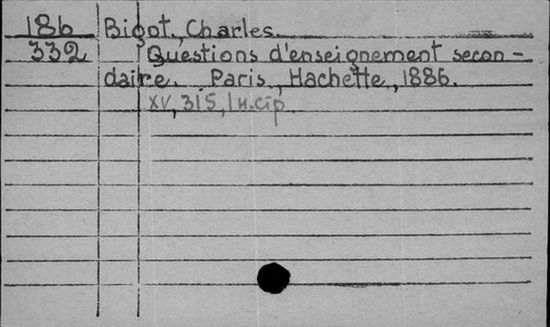 186 Bigot, Charles.
332 Questions d'enseignement secon-
daire. Paris, Hachette, 1886.
XV, 315, 1 н.с.